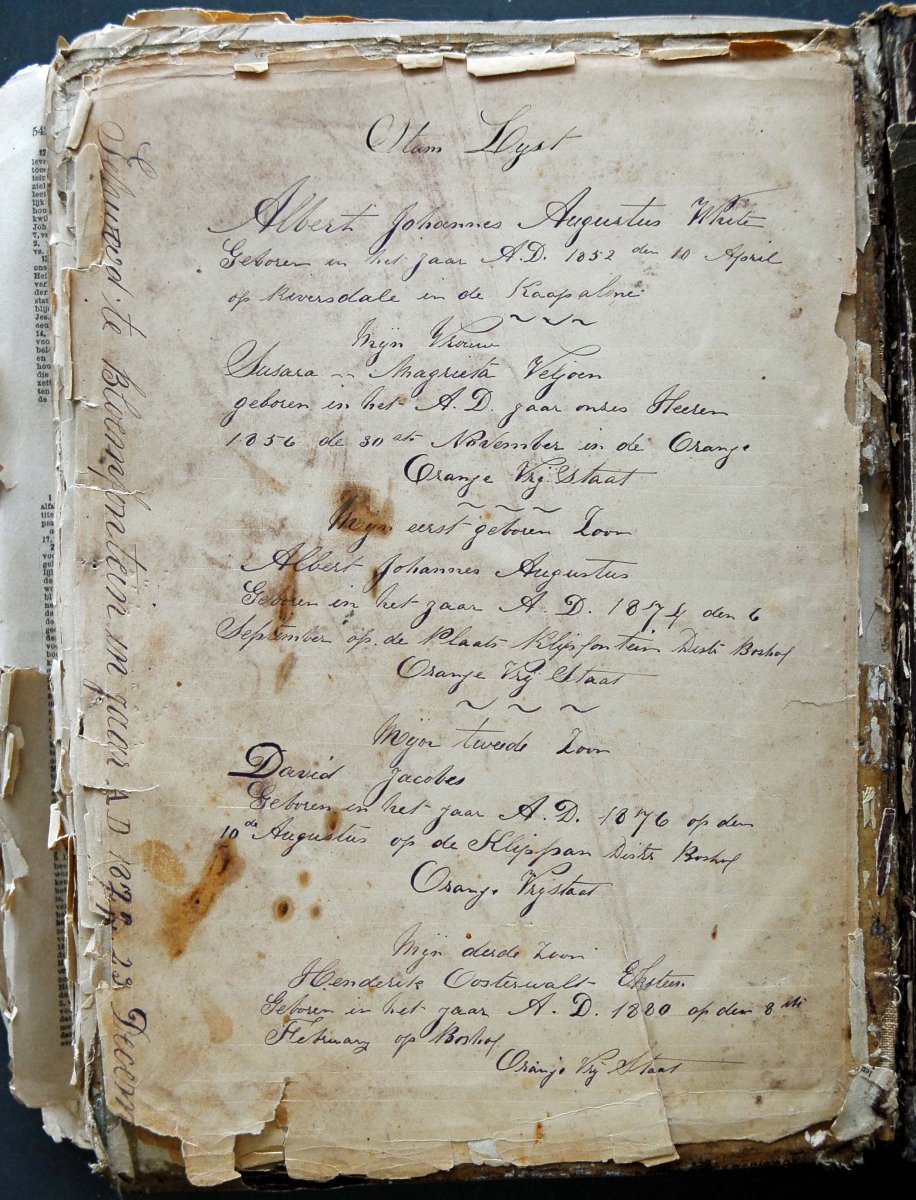 Stam Lyst
Albert Johannes Augustus White
Geboren in het jaar A.D. 1852 den 10 April
op Riversdale in de Kaapalonie
Mijn Vrouw
Susara Magrieta Veljoen
geboren in het A.D. jaar onzes Heeren
1856 de 30ste November in de Orange
Orange Vrij Staat
Mijn eerst geboren Zoon
Albert Johannes Augustus
Geboren in het jaar A.D. 1874 den 6
September op de Plaats Klipfontein Distr Boshof
Orange Vrij Staat
Mijn tweede Zoon
David Jacobes
Geboren in het jaar A.D. 1876 op den
10de Augustus op de Klippan Distr Boshof
Orange Vrystaat
Mijn derde Zoon
Henderik Oosterwalt Eksteen
Geboren in het jaar A.D. 1880 op den 8ste
February op Boshof
Orange Vrij Staat
te Bloemfontein in jaar A D 23 Decem